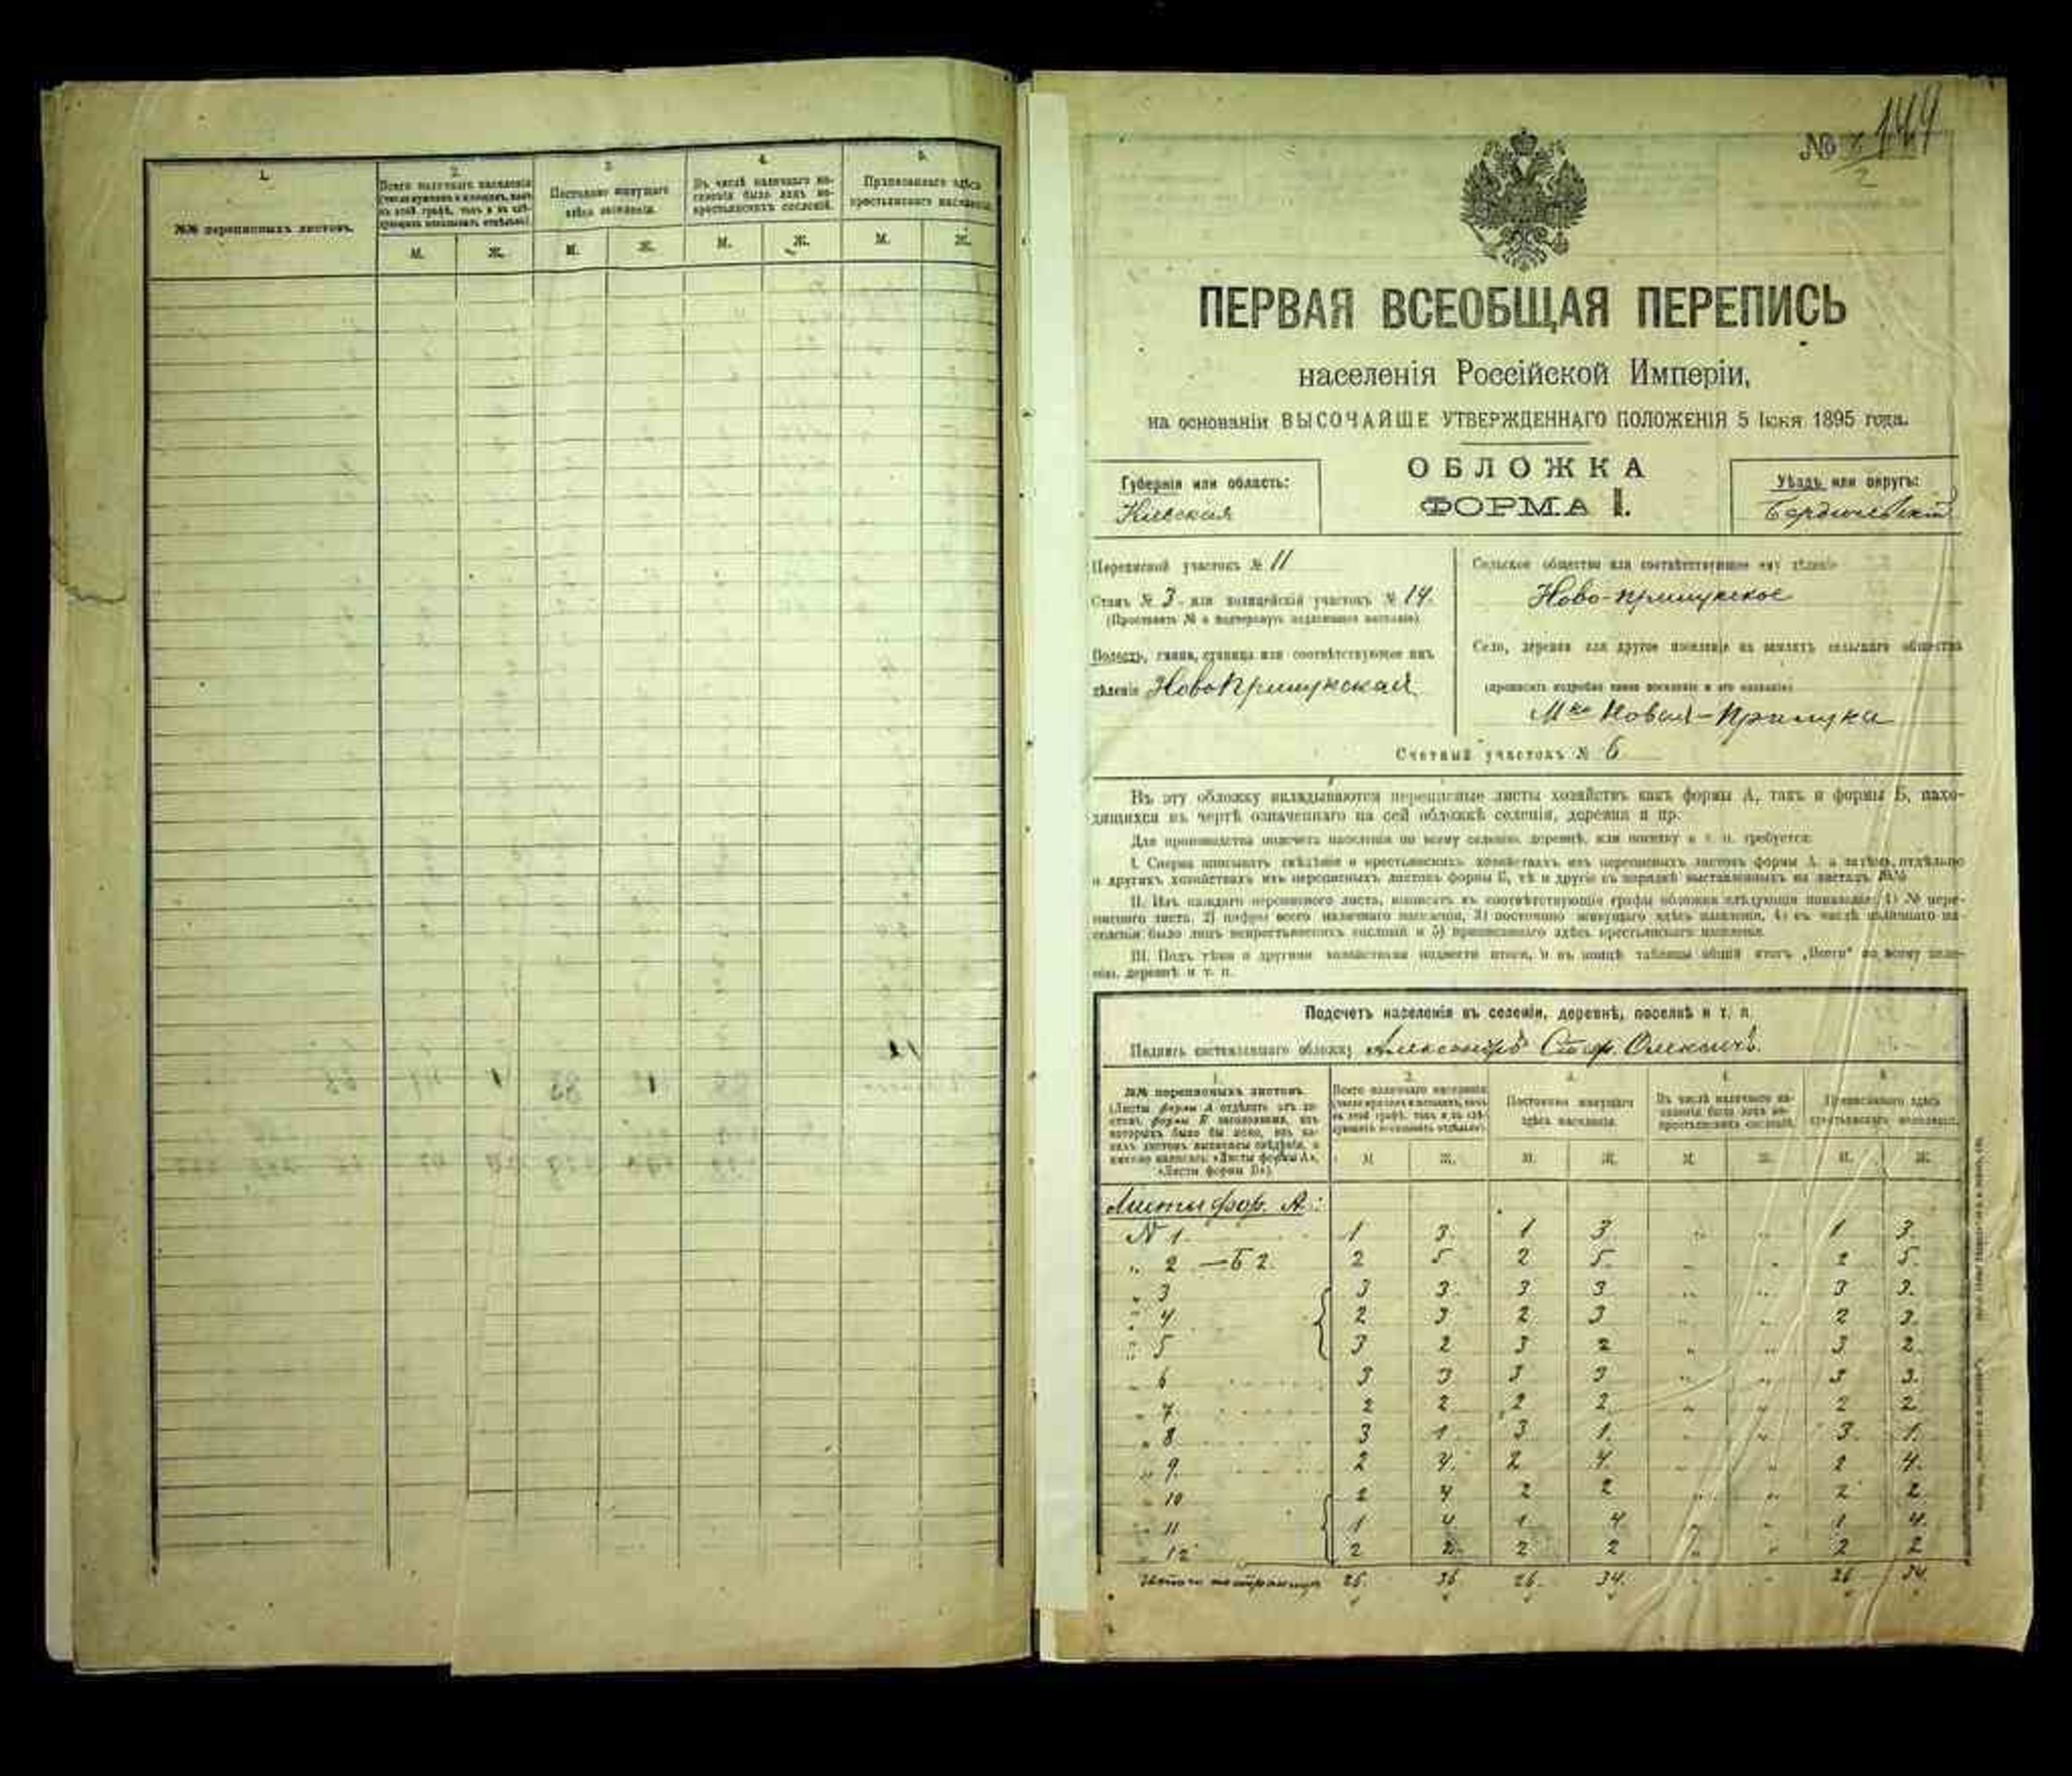 1.
№№ переписныхъ листовъ.
2.
Всего наличнаго населенія
М.
Ж.
3
Постоянно живущаго
здѣсь населенія.
М.
Ж.
4.
Въ числѣ наличнаго на-
селенія было лицъ не-
крестьянскихъ сословій.
М.
Ж.
5.
Приписаннаго здѣсь
крестьянскаго населенія.
М.
Ж.
№ 144
2
ПЕРВАЯ ВСЕОБЩАЯ ПЕРЕПИСЬ
населенія Россійской Имперіи,
на основаніи ВЫСОЧАЙШЕ УТВЕРЖДЕННАГО ПОЛОЖЕНІЯ 5 Іюня 1895 года.
ОБЛОЖКА
ФОРМА I.
Губернія или область:
Кіевская
Уѣздъ или округъ:
Бердичевскій
Переписной участокъ № 11
Станъ № 3. или полицейскій участокъ № 14.
(Проставить № и подчеркнуть надлежащее названіе)
Волость, гмина, станица или соотвѣтствующее имъ
дѣленіе Ново Прилукская
Сельское общество или соотвѣтствующее ему дѣленіе
Ново-прилукское
Село, деревня или другое поселеніе на земляхъ сельскаго общества
(прописать подробно какое поселеніе и его названіе)
Мко Новая-Прилука
Счетный участокъ № 6
Въ эту обложку вкладываются переписные листы хозяйствъ какъ формы А, такъ и формы Б, нахо-
дящихся въ чертѣ означеннаго на сей обложкѣ селенія, деревни и пр.
Для производства подсчета населенія по всему селенію, деревнѣ, или поселку и т. п. требуется:
I. Сперва вписывать свѣдѣнія о крестьянскихъ хозяйствахъ изъ переписныхъ листовъ формы А, а затѣмъ отдѣльно
о другихъ хозяйствахъ изъ переписныхъ листовъ формы Б, тѣ и другіе въ порядкѣ выставленныхъ на листахъ №№
II. Изъ каждаго переписного листа, вписать въ соотвѣтствующія графы обложки слѣдующія показанія: 1) № пере-
писного листа, 2) цифры всего наличнаго населенія, 3) постоянно живущаго здѣсь населенія, 4) въ числѣ наличнаго на-
селенія было лицъ некрестьянскихъ сословій и 5) приписаннаго здѣсь крестьянскаго населенія.
III. Подъ тѣми и другими хозяйствами подвести итоги, и въ концѣ таблицы общій итогъ „Всего“ по всему селе-
нію, деревнѣ и т. п.
Подсчетъ населенія въ селеніи, деревнѣ, поселкѣ и т. п.
Подпись составлявшаго обложку Александръ
1.
№№ переписныхъ листовъ.
(Листы формы А отдѣлить отъ ли-
стовъ формы Б
«Листы формы Б»).
2.
Всего наличнаго населенія
М
Ж.
3.
Постоянно живущаго
здѣсь населенія.
М.
Ж.
4
Въ числѣ наличнаго на-
селенія было лицъ не-
крестьянскихъ сословій.
М
Ж.
5
Приписаннаго здѣсь
крестьянскаго населенія.
М.
Ж.
Листы фор. А.:
№ 1. 1 3. 1 3 „ „ 1 3.
„ 2 —Б 2. 2 5 2 5. „ „ 2 5.
„ 3 3 3. 3 3 „ „ 3 3.
„ 4 2 3 2 3 „ „ 2 3.
„ 5 3 2 3 2 „ „ 3 2.
„ 6 3 3 3 3 „ „ 3 3.
„ 7. 2 2 2 2. „ „ 2 2.
„ 8 3 1. 3 1. „ „ 3. 1.
„ 9. 2 4. 2 4. „ „ 2 4.
„ 10 2 4 2 2 „ „ 2 2.
„ 11 1 4. 1 4 „ „ 1 4.
„ 12 2 2 2 2 „ „ 2 2
Итого по страницѣ 26. 36 26. 34. „ „ 26 34.